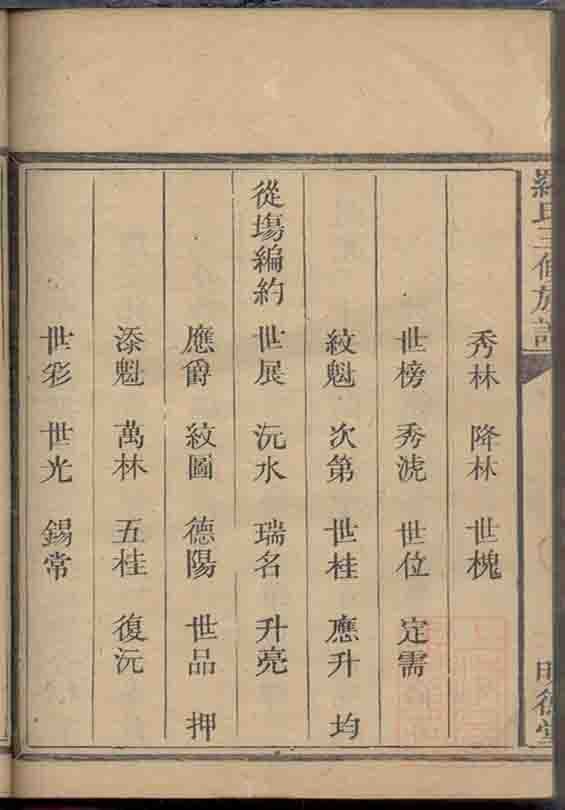 羅氏三修族譜
明德堂
秀林 降林 世槐
世榜 秀淲 世位 定需
紋魁 次第 世桂 應升 均
從塲編約 世展 沅水 瑞名 升亮
應爵 紋圖 德陽 世品 押
添魁 萬林 五桂 復沅
世彩 世光 錫常